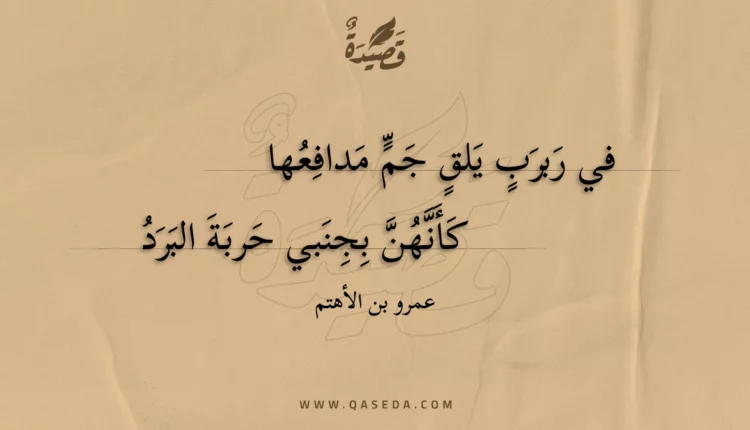 قَصِيدَةٌ
في رَبرَبٍ يَلقٍ جَمٍّ مَدافِعُها
كَأَنَّهُنَّ بِجِنَبي حَربَةَ البَرَدُ
عمرو بن الأهتم
WWW.QASEDA.COM